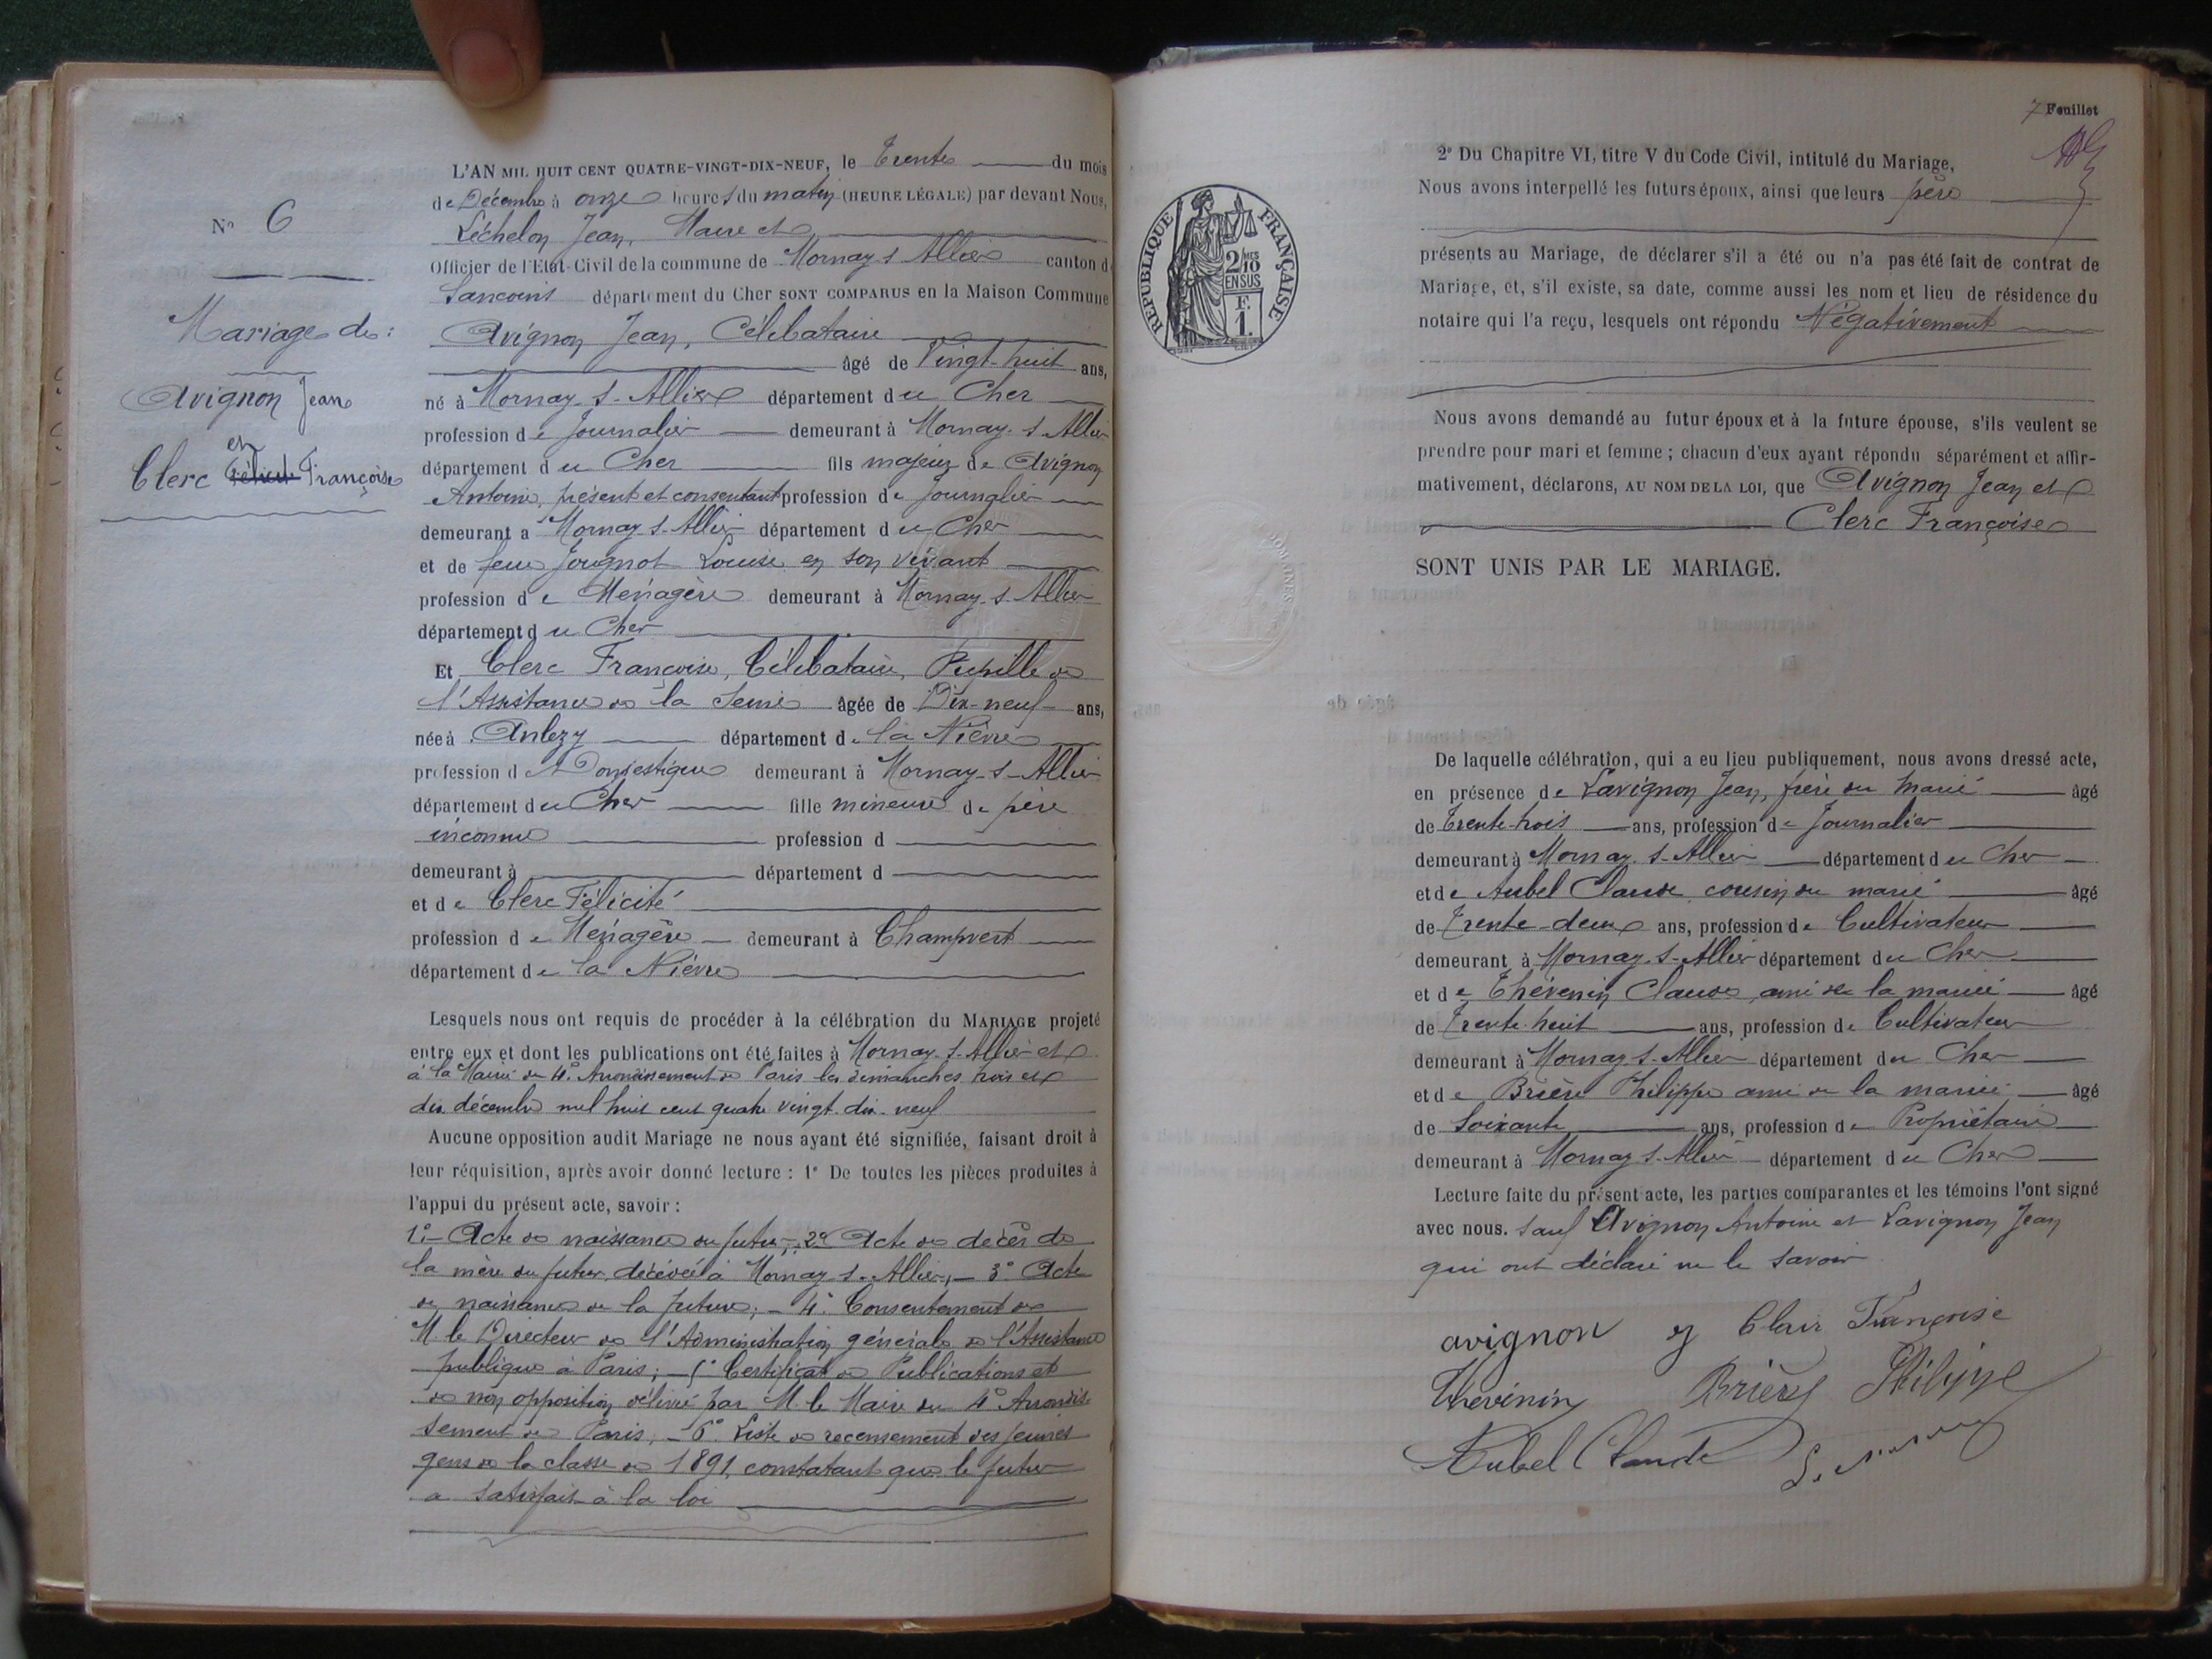 N° 6
Mariage de :
Avignon Jean
et
Clerc Félicité Françoise
L'AN MIL HUIT CENT QUATRE-VINGT-DIX-NEUF, le Trente du mois
de Décembre à onze heures du matin (HEURE LÉGALE) par devant Nous,
Léchelon Jean, Maire et
Officier de l'Etat-Civil de la commune de Mornay s Allier canton d
Sancoins département du Cher SONT COMPARUS en la Maison Commune
Avignon Jean, Célibataire
âgé de Vingt-huit ans,
né à Mornay-s-Allier département du Cher
profession de Journalier demeurant à Mornay-s Allier
département du Cher fils majeur de Avignon
Antoine, présent et consentant profession de Journalier
demeurant à Mornay-s-Allier département du Cher
et de feue Jougnot Louise en son vivant
profession de Ménagère demeurant à Mornay-s-Allier
département du Cher
Et Clerc Françoise, Célibataire, Pupille de
l'Assistance de la Seine âgée de Dix-neuf ans,
née à Anlezy département de la Nièvre
profession de Domestique demeurant à Mornay-s-Allier
département du Cher fille mineure de père
inconnu profession d
demeurant à département d
et de Clerc Félicité
profession de Ménagère demeurant à Champvert
département de la Nièvre
Lesquels nous ont requis de procéder à la célébration du MARIAGE projeté
entre eux et dont les publications ont été faites à Mornay-s-Allier et
à la Mairie du 4e Arrondissement de Paris les dimanches trois et
dix décembre mil huit cent quatre vingt-dix-neuf
Aucune opposition audit Mariage ne nous ayant été signifiée, faisant droit à
leur réquisition, après avoir donné lecture : 1° De toutes les pièces produites à
l'appui du présent acte, savoir :
1°- Acte de naissance du futur; - 2° Acte de décès de
la mère du futur, décédée à Mornay-s-Allier; - 3° Acte
de naissance de la future; - 4° Consentement de
M. le Directeur de l'Administration générale de l'Assistance
publique à Paris; - 5° Certificat de Publications et
de non opposition délivré par M. le Maire du 4e Arrondis-
sement de Paris; - 6° Liste de recensement des jeunes
gens de la classe de 1891, constatant que le futur
a satisfait à la loi
7 Feuillet
REPUBLIQUE FRANÇAISE
2/10MES
EN SUS
F.
1.
2° Du Chapitre VI, titre V du Code Civil, intitulé du Mariage,
Nous avons interpellé les futurs époux, ainsi que leurs père
présents au Mariage, de déclarer s'il a été ou n'a pas été fait de contrat de
Mariage, et, s'il existe, sa date, comme aussi les nom et lieu de résidence du
notaire qui l'a reçu, lesquels ont répondu Négativement
Nous avons demandé au futur époux et à la future épouse, s'ils veulent se
prendre pour mari et femme ; chacun d'eux ayant répondu séparément et affir-
mativement, déclarons, AU NOM DE LA LOI, que Avignon Jean et
Clerc Françoise
SONT UNIS PAR LE MARIAGE.
De laquelle célébration, qui a eu lieu publiquement, nous avons dressé acte,
en présence de Lavignon Jean, frère du marié âgé
de Trente-trois ans, profession de Journalier
demeurant à Mornay-s-Allier département du Cher
et de Aubel Claude, cousin du marié âgé
de Trente-deux ans, profession de Cultivateur
demeurant à Mornay-s-Allier département du Cher
et de Thévenin Claude, ami de la mariée âgé
de Trente-huit ans, profession de Cultivateur
demeurant à Mornay-s-Allier département du Cher
et de Brière Philippe ami de la mariée âgé
de Soixante ans, profession de Propriétaire
demeurant à Mornay-s-Allier département du Cher
Lecture faite du présent acte, les parties comparantes et les témoins l'ont signé
avec nous. sauf Avignon Antoine et Lavignon Jean
qui ont déclaré ne le savoir
avignon Clair Françoise
Thevenin Brière Philippe
Aubel Claude